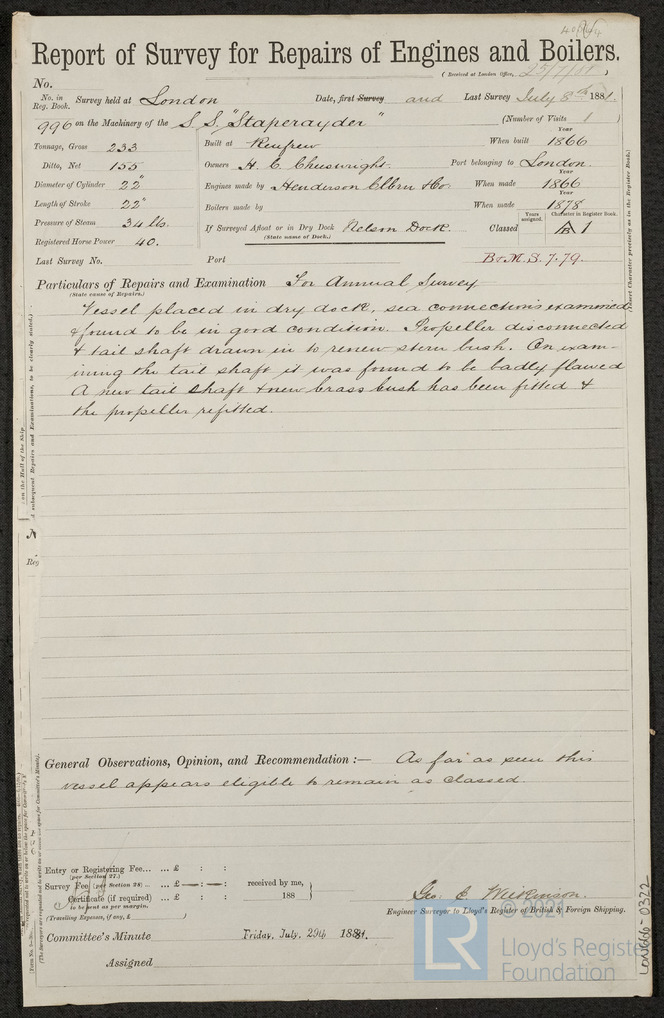 Report of Survey for Repairs of Engines and Boilers.
(Received at London Office, 25/7/81)
No.
No. in Reg. Book. Survey held at London Date, first Survey and Last Survey July 8th 1881.
996 on the Machinery of the S.S. "Staperayder" (Number of Visits 1)
Tonnage, Gross 233 Built at Renfrew When built Year 1866
Ditto, Net 155 Owners H. C. Cheeswright. Port belonging to London.
Diameter of Cylinder 22" Engines made by Henderson & Co When made Year 1866
Length of Stroke 22" Boilers made by When made Year 1878
Pressure of Steam 34 lbs. If Surveyed Afloat or in Dry Dock Nelson Dock. Classed Years assigned. Character in Register Book. A 1
(State name of Dock.)
Registered Horse Power 40.
Last Survey No. Port B&M.S. 7.79.
Particulars of Repairs and Examination For Annual Survey
(State cause of Repairs.)
Vessel placed in dry dock, sea connections examined
& found to be in good condition. Propeller disconnected
& tail shaft drawn in to renew stern bush. On exam-
ining the tail shaft it was found to be badly flawed
A new tail shaft & new brass bush has been fitted &
the propeller refitted.
General Observations, Opinion, and Recommendation :— As far as seen this
vessel appears eligible to remain as classed.
Entry or Registering Fee... ... £ : :
(per Section 27.)
Survey Fee (per Section 28) ... ... £ — : — : received by me,
Certificate (if required) ... £ : : 188
(to be sent as per margin.
(Travelling Expenses, if any, £ )
Geo. C. Wilkinson.
Engineer Surveyor to Lloyd's Register of British & Foreign Shipping.
Committee's Minute Friday, July, 29th 1881.
Assigned
© 2021
LR Lloyd's Register
Foundation
LON666-0322